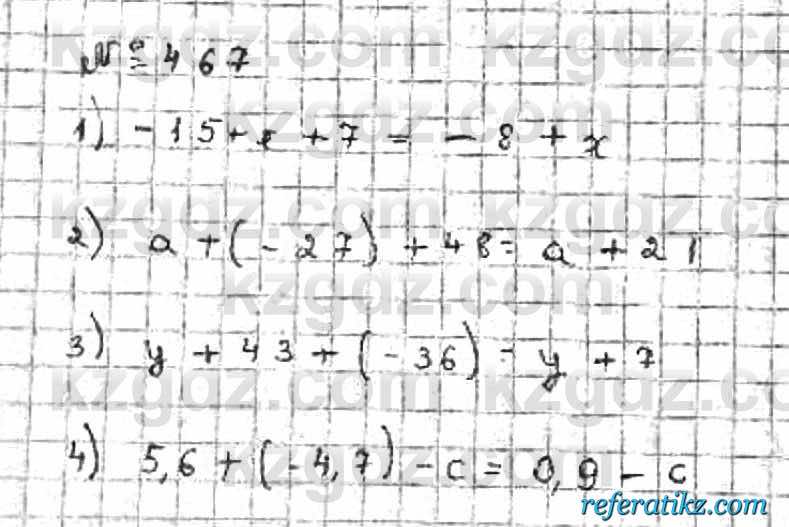 № 467
1) -15+x+7 = -8+x
2) a+(-27)+48= a+21
3) y+43+(-36)= y+7
4) 5,6+(-4,7)-c= 0,9-c
kzgdz.com
referatikz.com